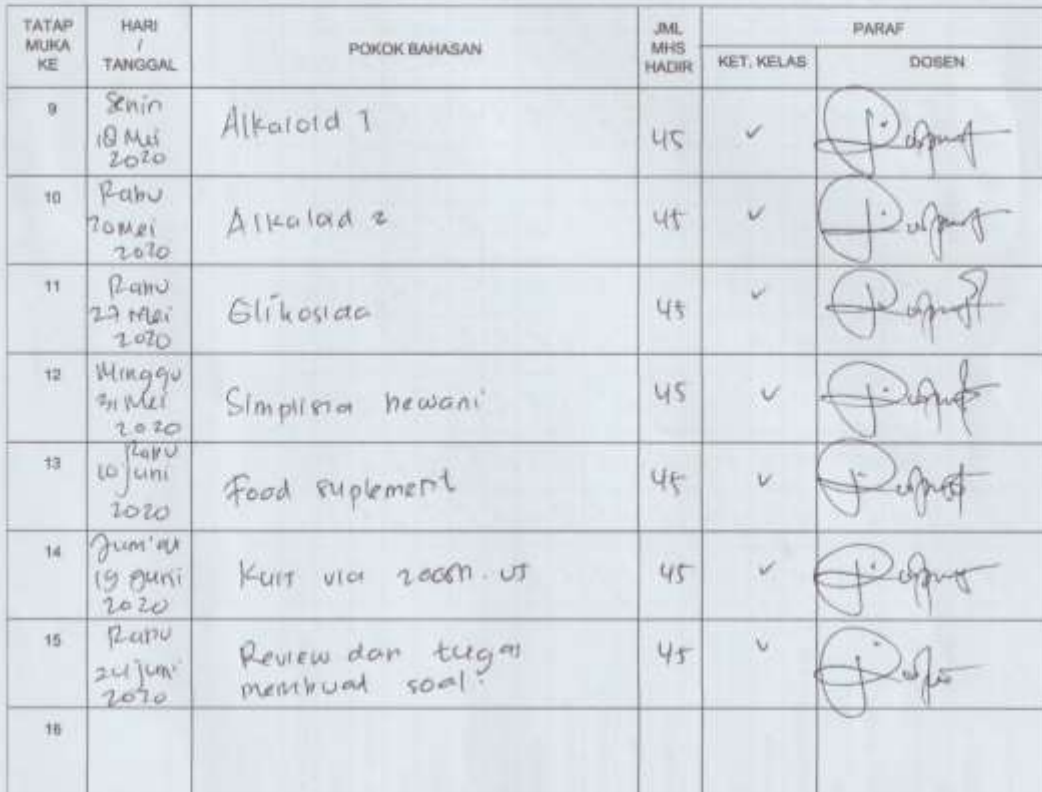 TATAP MUKA KE
HARI / TANGGAL
POKOK BAHASAN
JML MHS HADIR
PARAF
KET. KELAS
DOSEN
9
Senin
18 Mei
2020
Alkaloid 1
45
✓
10
Rabu
20 Mei
2020
Alkaloid 2
45
✓
11
Rabu
27 Mei
2020
Glikosida
45
✓
12
Minggu
31 Mei
2020
Simplisia hewani
45
✓
13
Rabu
10 Juni
2020
Food suplement
45
✓
14
Jum'at
19 Juni
2020
Kuis via zoom.us
45
✓
15
Rabu
24 Juni
2020
Review dan tugas
membuat soal.
45
✓
16